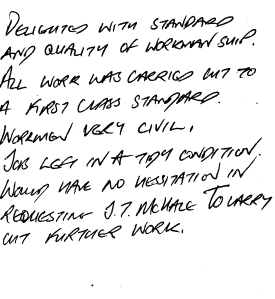 DELIGHTED WITH STANDARD
AND QUALITY OF WORKMAN SHIP.
ALL WORK WAS CARRIED OUT TO
A FIRST CLASS STANDARD.
WORKMEN VERY CIVIL.
JOB LEFT IN A TIDY CONDITION.
WOULD HAVE NO HESSITATION IN
REQUESTING J.T. McHALE TO CARRY
OUT FURTHER WORK.